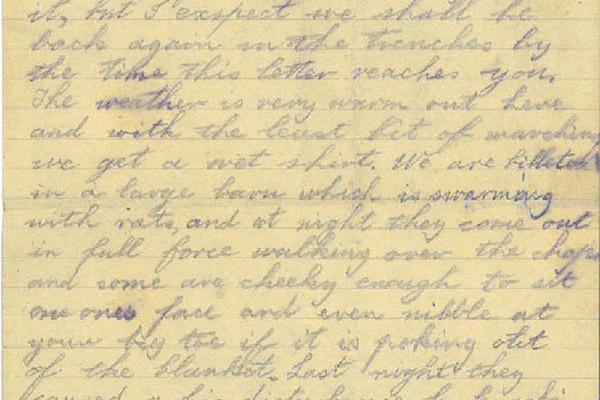 it, but I exspect we shall be
back again in the trenches by
the time this letter reaches you.
The weather is very warm out here
and with the least bit of marching
we get a wet shirt. We are billeted
in a large barn which is swarming
with rats, and at night they come out
in full force walking over the chaps
and some are cheeky enough to sit
on ones face and even nibble at
your big toe if it is poking out
of the blanket. Last night they
caused a big disturbance